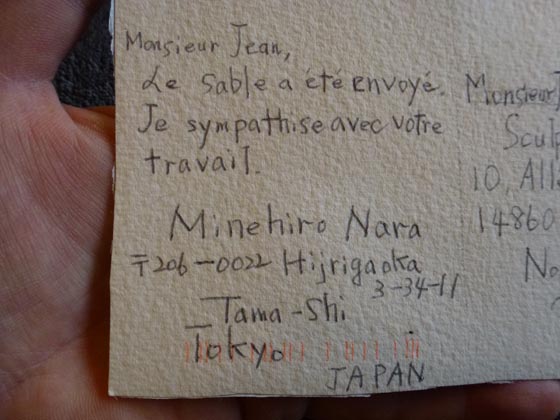 Monsieur Jean,
Le sable a été envoyé.
Je sympathise avec votre
travail.
Minehiro Nara
〒206-0022 Hijrigaoka
3-34-11
Tama-Shi
Tokyo
JAPAN
Monsieur
10, All
14860